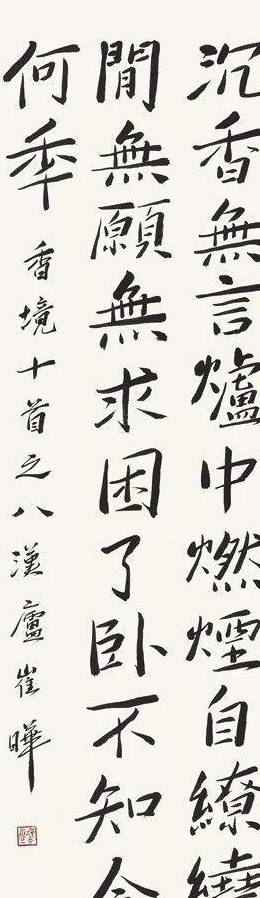 沉香無言爐中燃煙自繚繞
閒無願無求困了卧不知今
何秊
香境十首之八漢廬崔曄